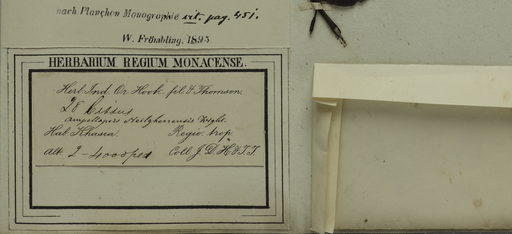 nach Planchon Monographie vit. pag. 451.
W. Frombling. 1895
HERBARIUM REGIUM MONACENSE.
Herb. Ind. Or. Hook. fil. & Thomson.
Cissus
Ampelopsis Neilgherrensis Wight.
Hab. Khasia. Regio. trop.
Alt. 2-4000 ped Coll. J. D. H. & T. T.